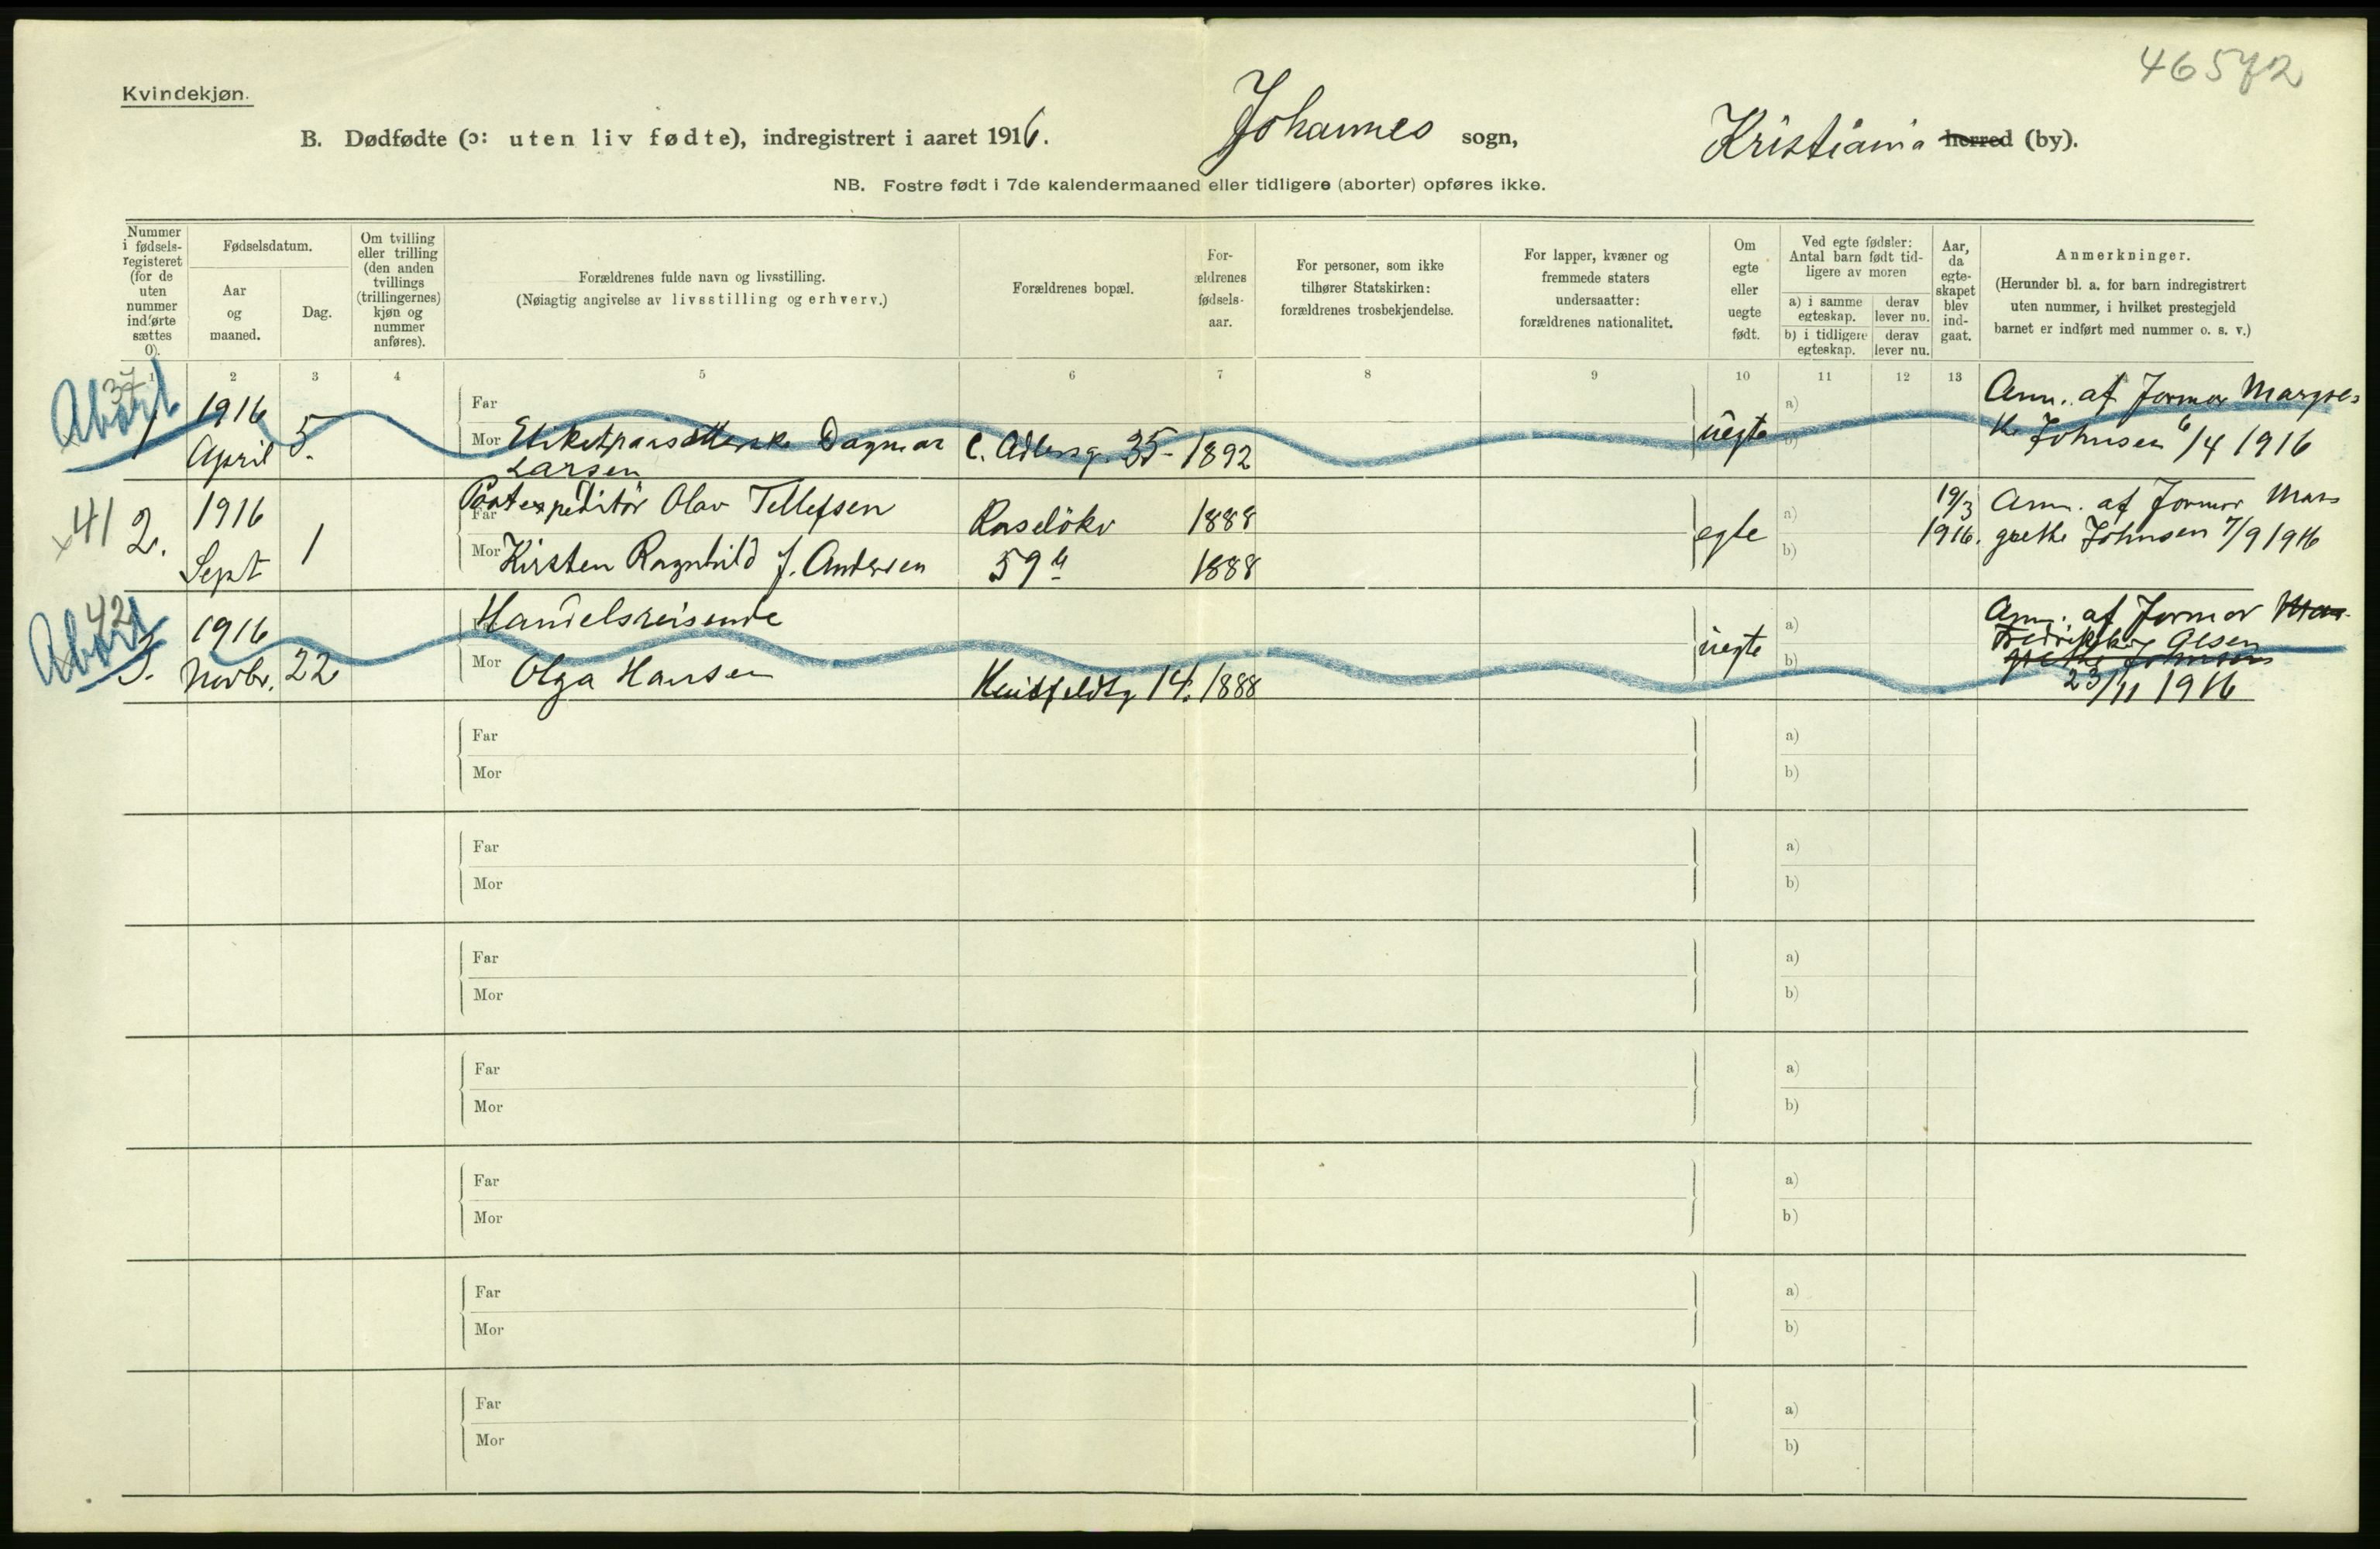 46572
Kvindekjøn.
B. Dødfødte (ɔ: uten liv fødte), indregistrert i aaret 1916. Johannes sogn, Kristiania herred (by).
NB. Fostre født i 7de kalendermaaned eller tidligere (aborter) opføres ikke.
Nummer i fødsels-registeret (for de uten nummer indførte sættes 0).
Fødselsdatum.
Aar og maaned.
Dag.
Om tvilling eller trilling (den anden tvillings (trillingernes) kjøn og nummer anføres).
Forældrenes fulde navn og livsstilling.
(Nøiagtig angivelse av livsstilling og erhverv.)
Forældrenes bopæl.
For-ældrenes fødsels-aar.
For personer, som ikke tilhører Statskirken: forældrenes trosbekjendelse.
For lapper, kvæner og fremmede staters undersaatter: forældrenes nationalitet.
Om egte eller uegte født.
Ved egte fødsler: Antal barn født tid-ligere av moren
a) i samme egteskap.
derav lever nu.
b) i tidligere egteskap.
derav lever nu.
Aar, da egte-skapet blev ind-gaat.
Anmerkninger.
(Herunder bl. a. for barn indregistrert uten nummer, i hvilket prestegjeld barnet er indført med nummer o. s. v.)
1 2 3 4 5 6 7 8 9 10 11 12 13
Abort 37
1 1916 April 5. Far
Mor Etiketpaasætterske Dagmar Larsen C. Adlersg. 35 - 1892 uegte a) b) Anm. af Jormor Margre-
the Johnsen 6/4 1916
x41 2. 1916 Sept 1 Far Postexpeditör Olav Tellefsen 1888
Mor Kirsten Ragnhild J. Andersen 59 1888 egte a) b) 19/3 1916. Anm. af Jormor Mar-
grethe Johnsen 7/9 1916
Abort 42
3. 1916 Novbr. 22 Handelsreisende
Mor Olga Hansen Huitfeldtsg 14. 1888 uegte a) b) Anm. af Jormor Mar-
Fredrikke Olsen
grethe Johnsen
23/11 1916
Far a)
Mor b)
Far a)
Mor b)
Far a)
Mor b)
Far a)
Mor b)
Far a)
Mor b)
Far a)
Mor b)
Far a)
Mor b)